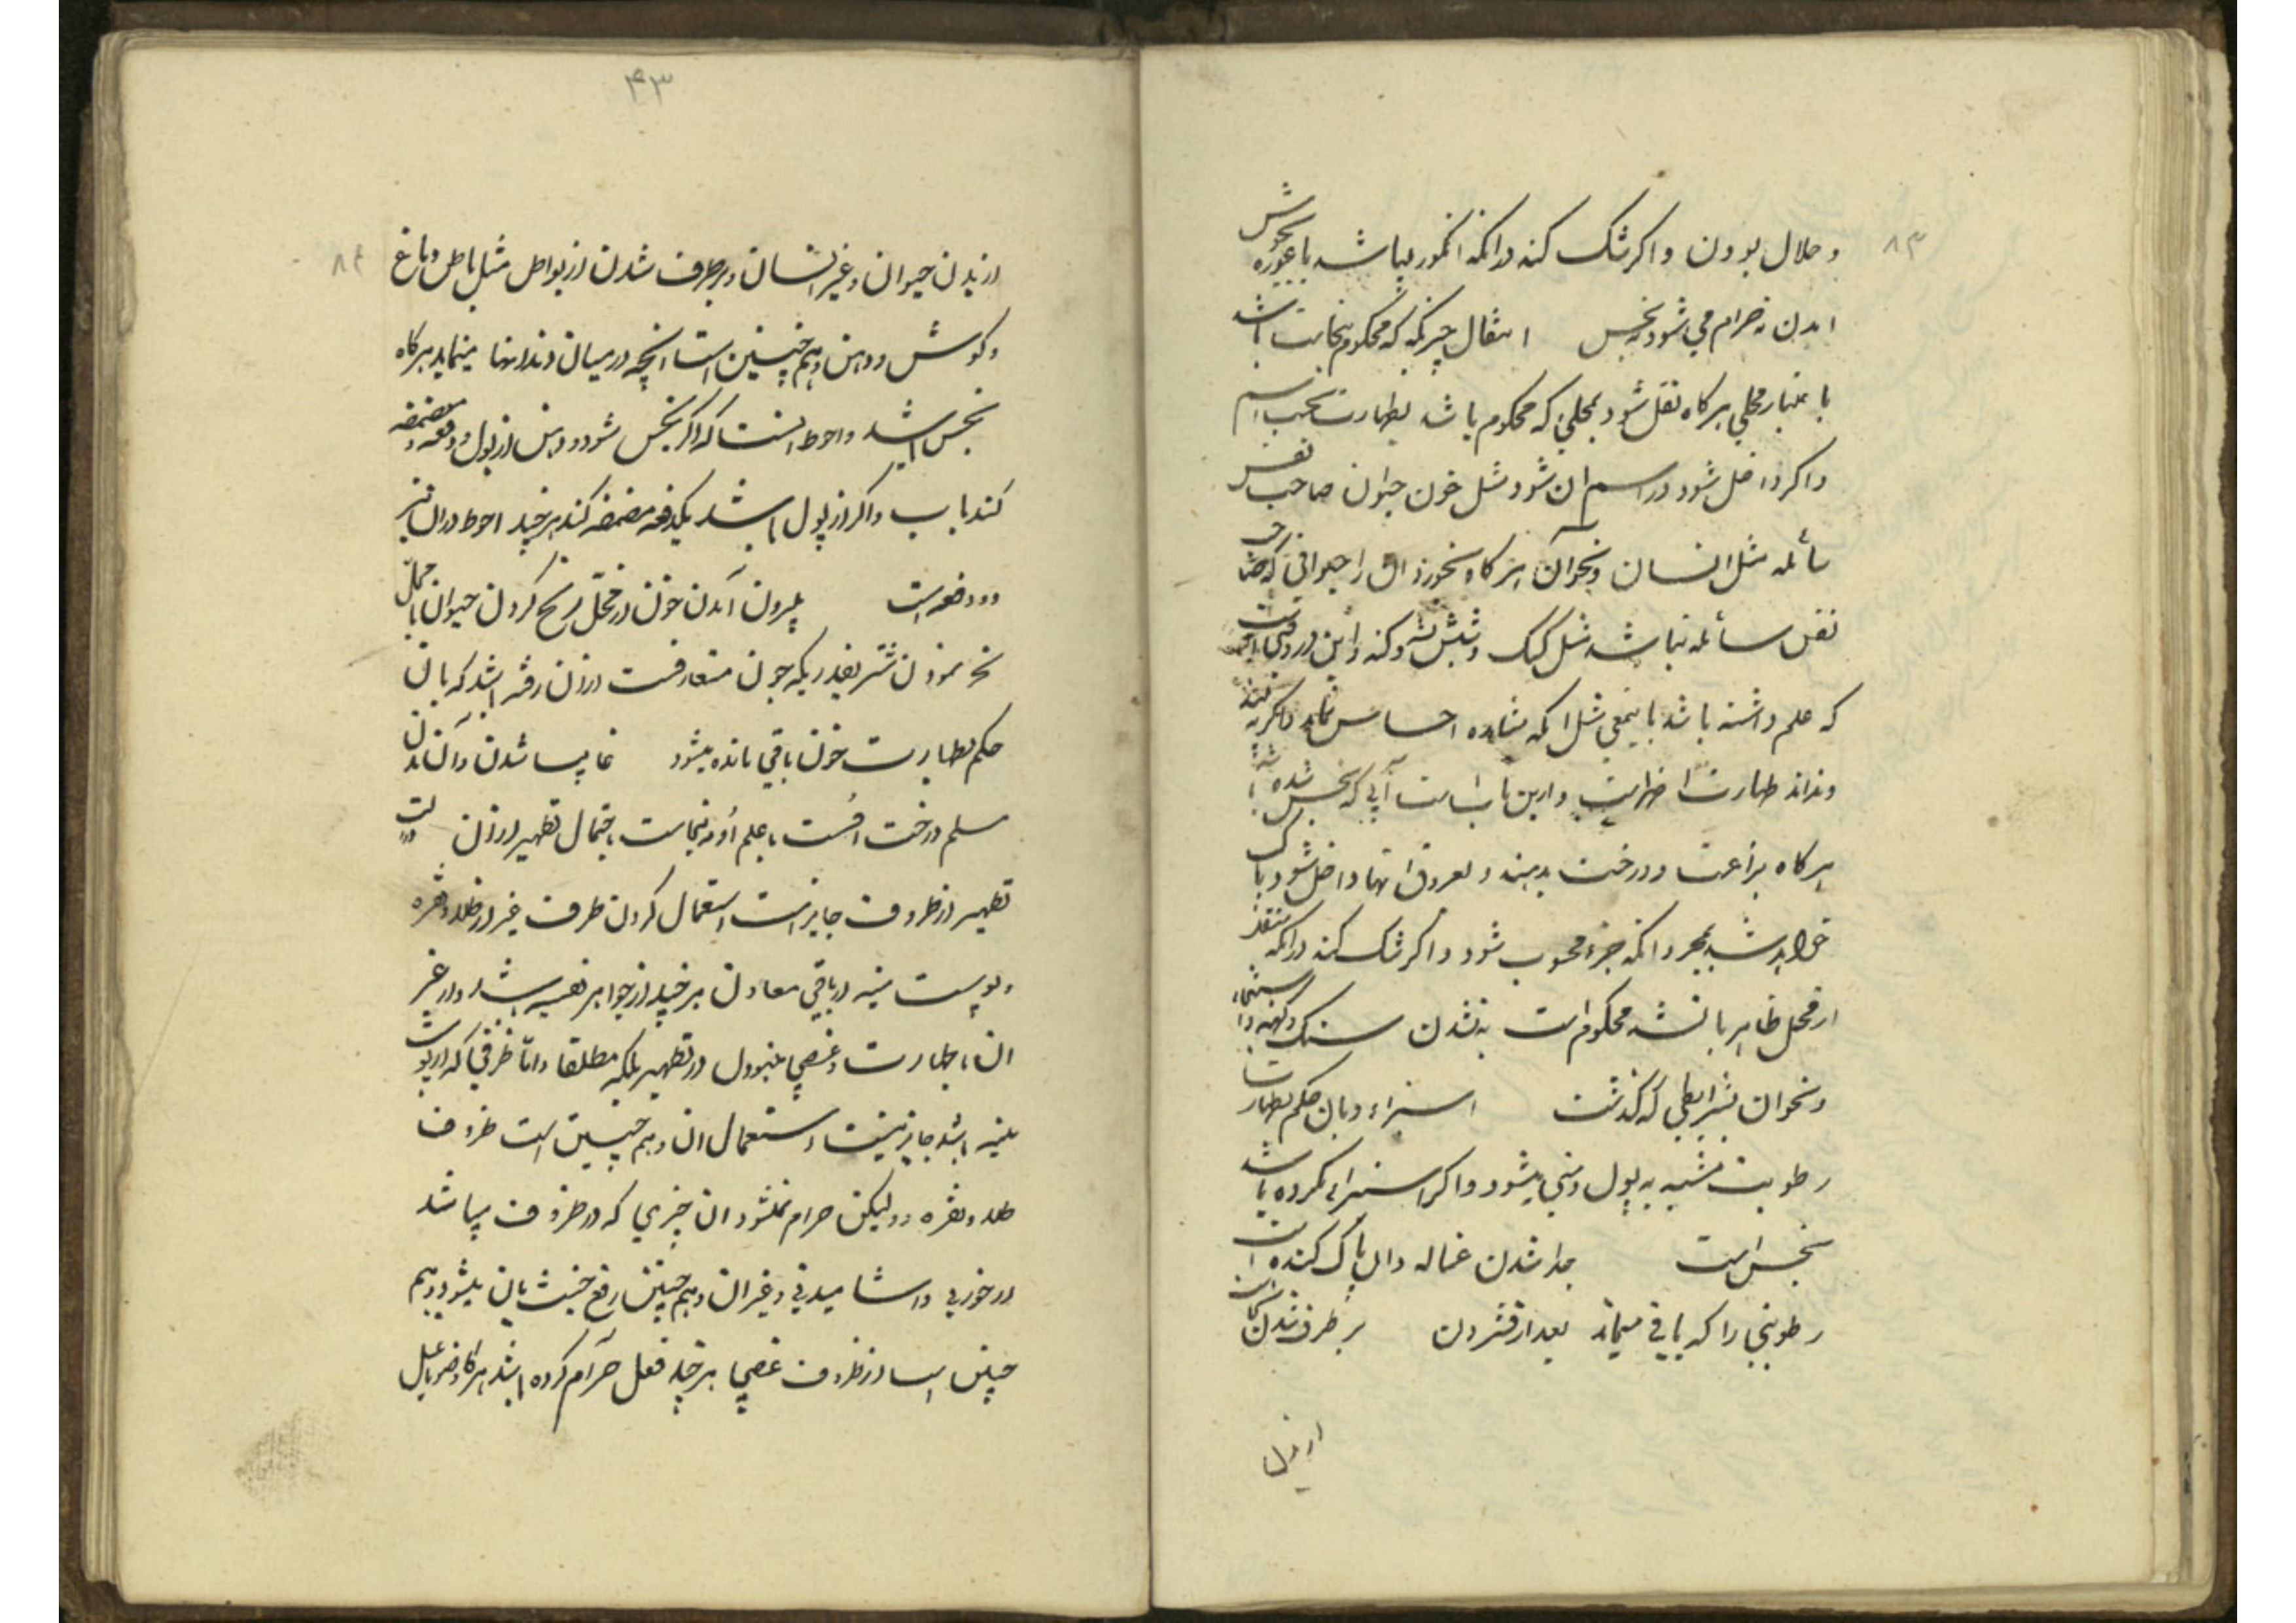 ۸۳
و حلال بودن و اکر شک کند در انکه انکور میباشد یا غوره بجوش
امدن نه حرام می شود نه نجس انتقال چیزیکه که محکوم بنجاست باشد
باعتبار محلی هرکاه نقل شود بمحلی که محکوم باشد بطهارت بحسب اسم
و اکر داخل شود در اسم ان شود مثل خون حیوان صاحب نفس
سائله مثل انسان و نحو آن هرکاه بخورد ان را حیوانی که صاحب
نفس سائله نباشد مثل کیک و شپش و پشه و کنه و این در وقتی است
که علم داشته باشد باینمعنی مثل انکه مشاهده احساس نماید و اکر نه
و نداند طهارت اظهر است و از این باب است آبی که نجس شده باشد
هرکاه بزراعت و درخت بدهند و بعروق انها داخل شود پاک
خواهد شد بمجرد انکه جزء محسوب شود و اکر شک کند در انکه منتقل
از محل ظاهر یا نشده محکوم است به نشدن سنک و کهنه و استنجاء
و نحو ان بشرایطی که کذشت استبراء و بان حکم بطهارت
رطوبت مشتبه به بول و منی میشود و اکر استبراء نکرده باشد
نجس است جدا شدن غساله و ان پاک کننده است
رطوبتی را که باقی میماند بعد از فشردن بر طرف شدن نجاست
از بدن
۴۳
۸۴
از بدن حیوان و غیر انسان و بر طرف شدن از بواطن مثل باطن دماغ
و کوش و دهن و هم چنین است انچه در میان دندانها مینماید هرکاه
نجس باشد و احوط انست که اکر نجس شود دهن از بول دو دفعه مضمضه
کند باب و اکر از بول نباشد یکدفعه مضمضه کند هر چند احوط در ان نیز
دو دفعه است بیرون آمدن خون از محل ذبح کردن حیوان یا محل
نحر نمودن شتر بقدریکه چون متعارفست از ان رفته باشد که بان
حکم بطهارت خون باقی مانده میشود غایب شدن و آن در بدن
مسلم و رخت اوست با علم او به نجاست و احتمال تطهیر از ان
تطهیر از ظروف جایز است استعمال کردن ظرف غیر از طلا و نقره
و پوست میته از باقی معادن هر چند از جواهر نفیسه باشد و از غیر
ان با طهارت و غصبی نبودن در تطهیر بلکه مطلقا و اما ظرفی که از پوست
میته باشد جایز نیست استعمال ان و هم چنین است ظروف
طلا و نقره و لیکن حرام نمیشود ان چیزی که در ظروف میباشد
از خوردنی و اشامیدنی و غیر ان و هم چنین رفع خبث بان میشود و هم
چنین است از ظروف غصبی هر چند فعل حرام کرده باشد هرکاه وضو یا غسل